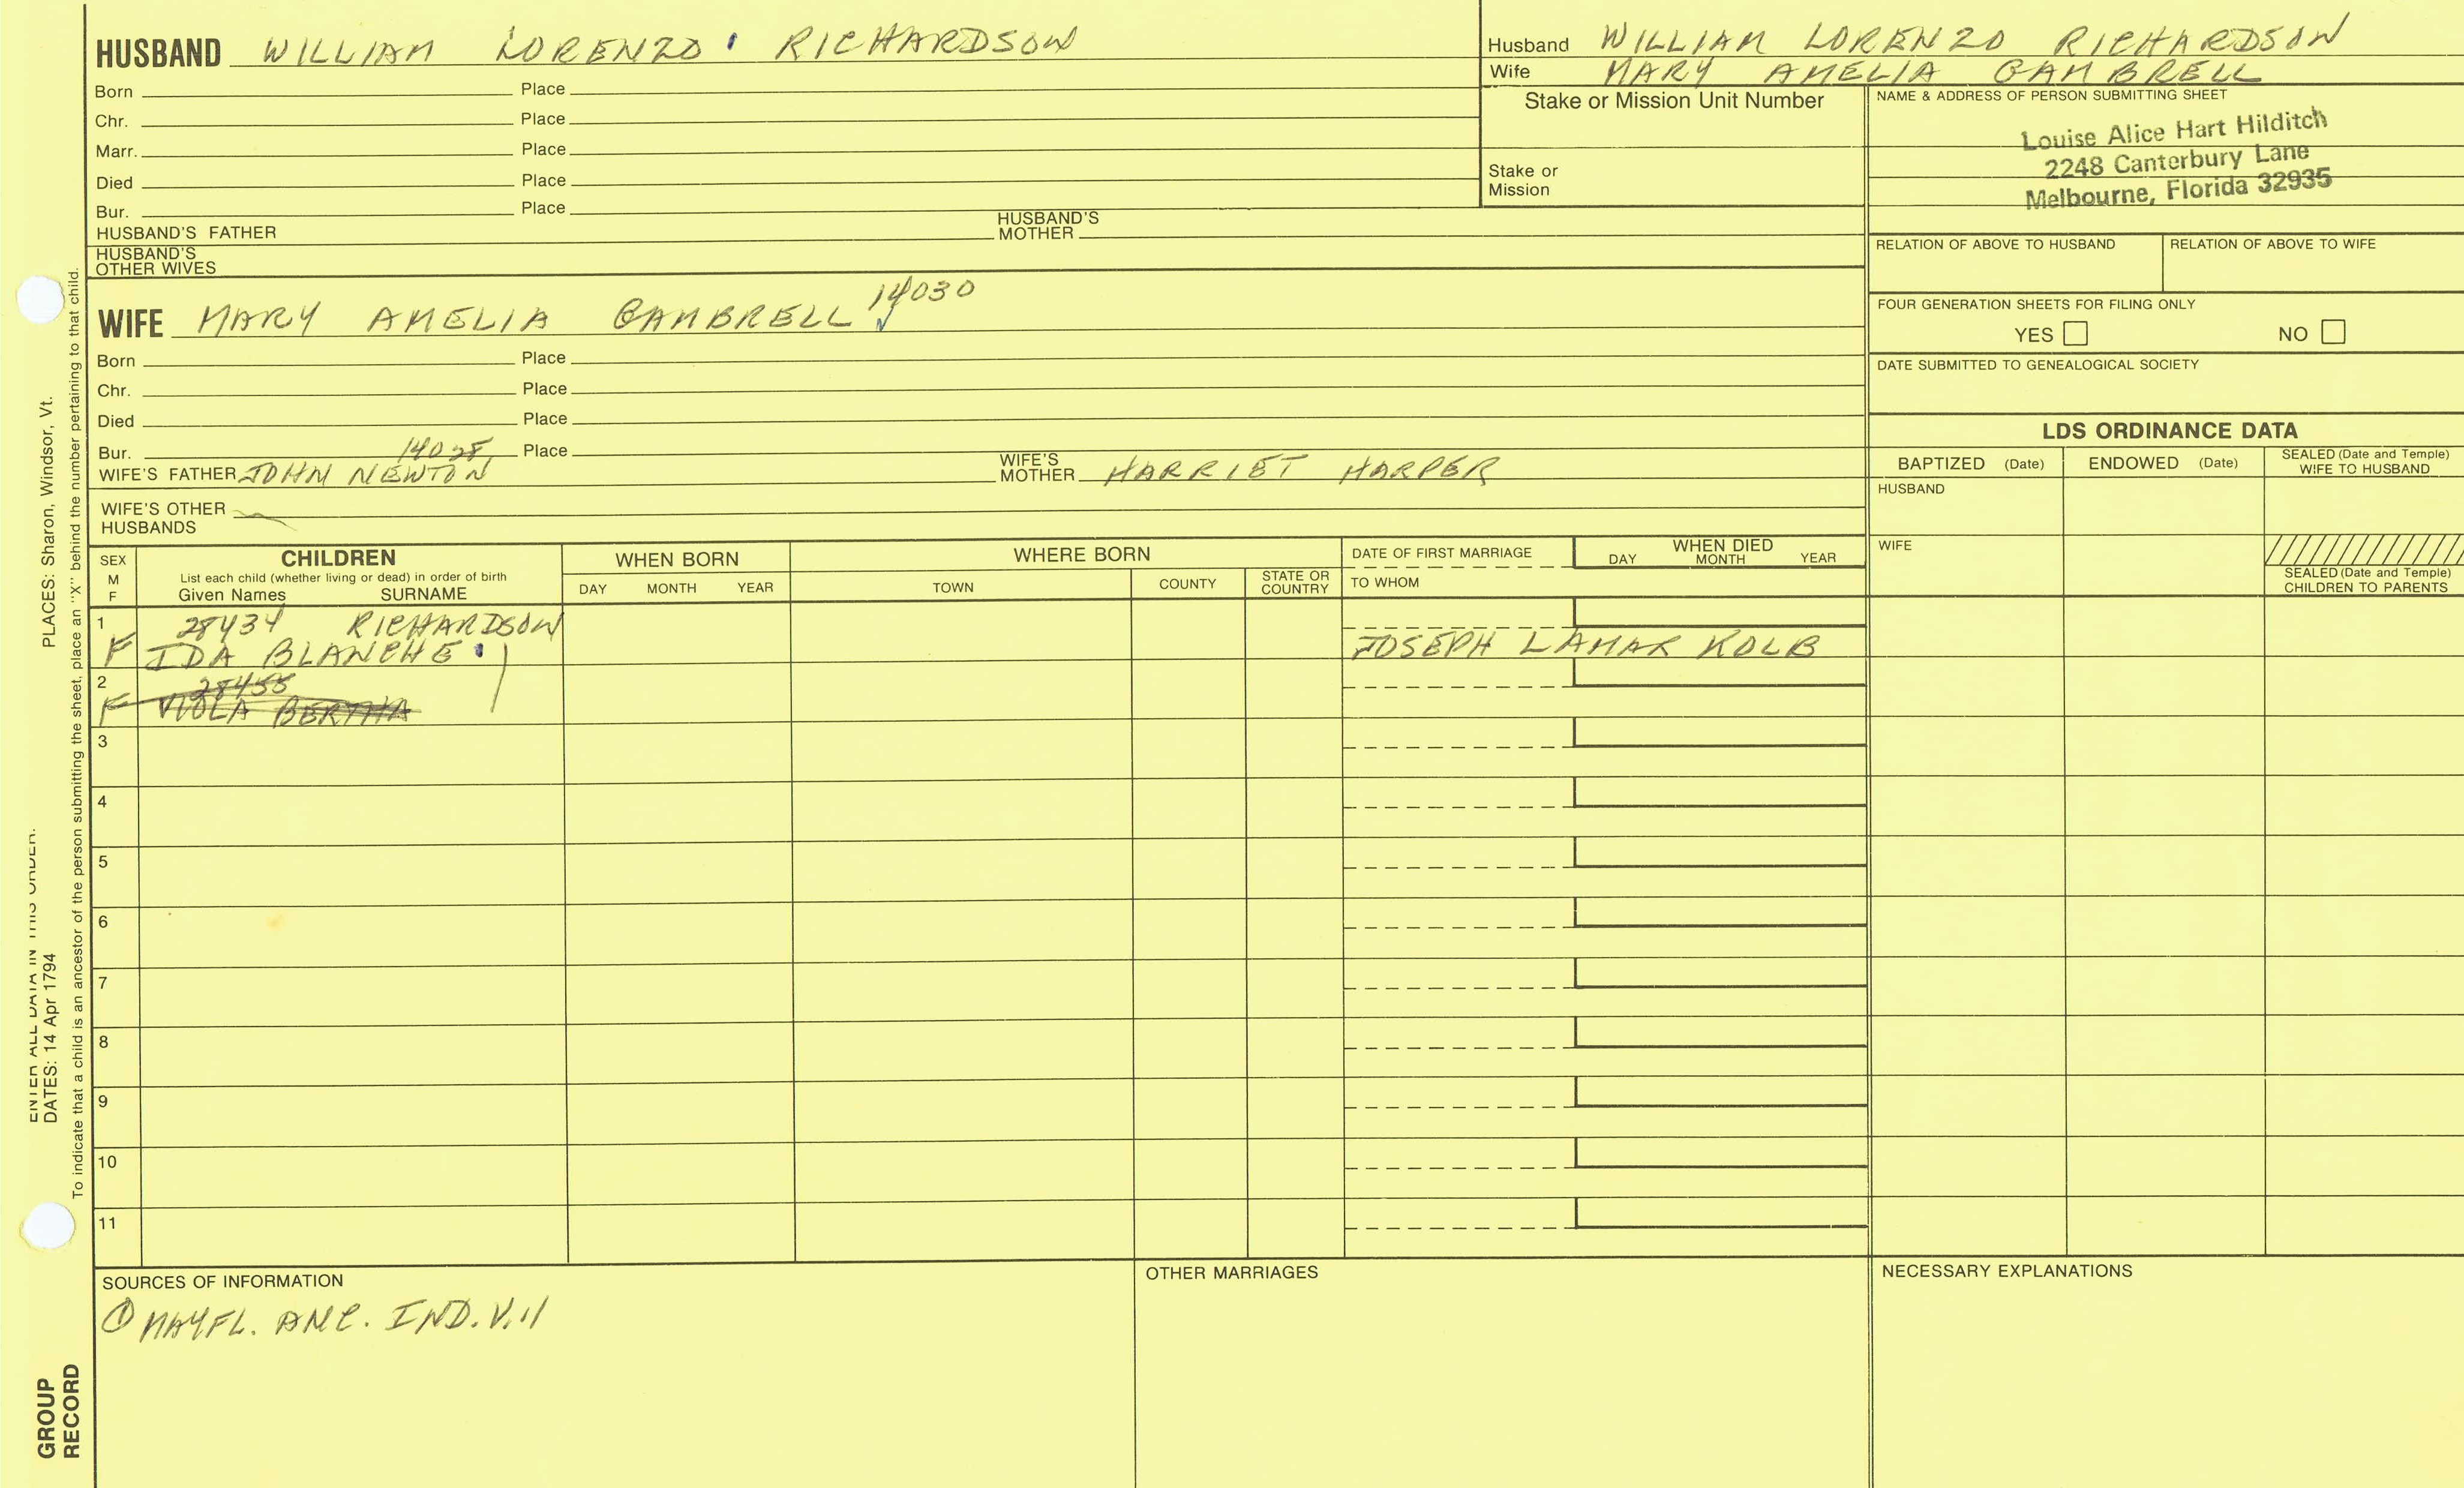 HUSBAND WILLIAM LORENZO RICHARDSON
Born Place
Chr. Place
Marr. Place
Died Place
Bur. Place
HUSBAND'S FATHER HUSBAND'S MOTHER
HUSBAND'S OTHER WIVES
Husband WILLIAM LORENZO RICHARDSON
Wife MARY AMELIA GAMBRELL
Stake or Mission Unit Number
Stake or Mission
NAME & ADDRESS OF PERSON SUBMITTING SHEET
Louise Alice Hart Hilditch
2248 Canterbury Lane
Melbourne, Florida 32935
RELATION OF ABOVE TO HUSBAND RELATION OF ABOVE TO WIFE
FOUR GENERATION SHEETS FOR FILING ONLY
YES NO
DATE SUBMITTED TO GENEALOGICAL SOCIETY
WIFE MARY AMELIA GAMBRELL 14030
Born Place
Chr. Place
Died Place
Bur. 14028 Place
WIFE'S FATHER JOHN NEWTON WIFE'S MOTHER HARRIET HARPER
WIFE'S OTHER HUSBANDS
LDS ORDINANCE DATA
BAPTIZED (Date) ENDOWED (Date) SEALED (Date and Temple) WIFE TO HUSBAND
HUSBAND
WIFE
SEALED (Date and Temple) CHILDREN TO PARENTS
SEX M F
CHILDREN
List each child (whether living or dead) in order of birth
Given Names SURNAME
WHEN BORN
DAY MONTH YEAR
WHERE BORN
TOWN COUNTY STATE OR COUNTRY
DATE OF FIRST MARRIAGE
TO WHOM
WHEN DIED
DAY MONTH YEAR
1 28434 RICHARDSON
F IDA BLANCHE JOSEPH LAMAR KOLB
2 28435
F VIOLA BERTHA
3
4
5
6
7
8
9
10
11
SOURCES OF INFORMATION
① MAYFL. ANC. IND. V.11
OTHER MARRIAGES
NECESSARY EXPLANATIONS
ENTER ALL DATA IN THIS ORDER:
DATES: 14 Apr 1794 PLACES: Sharon, Windsor, Vt.
To indicate that a child is an ancestor of the person submitting the sheet, place an "X" behind the number pertaining to that child.
GROUP
RECORD